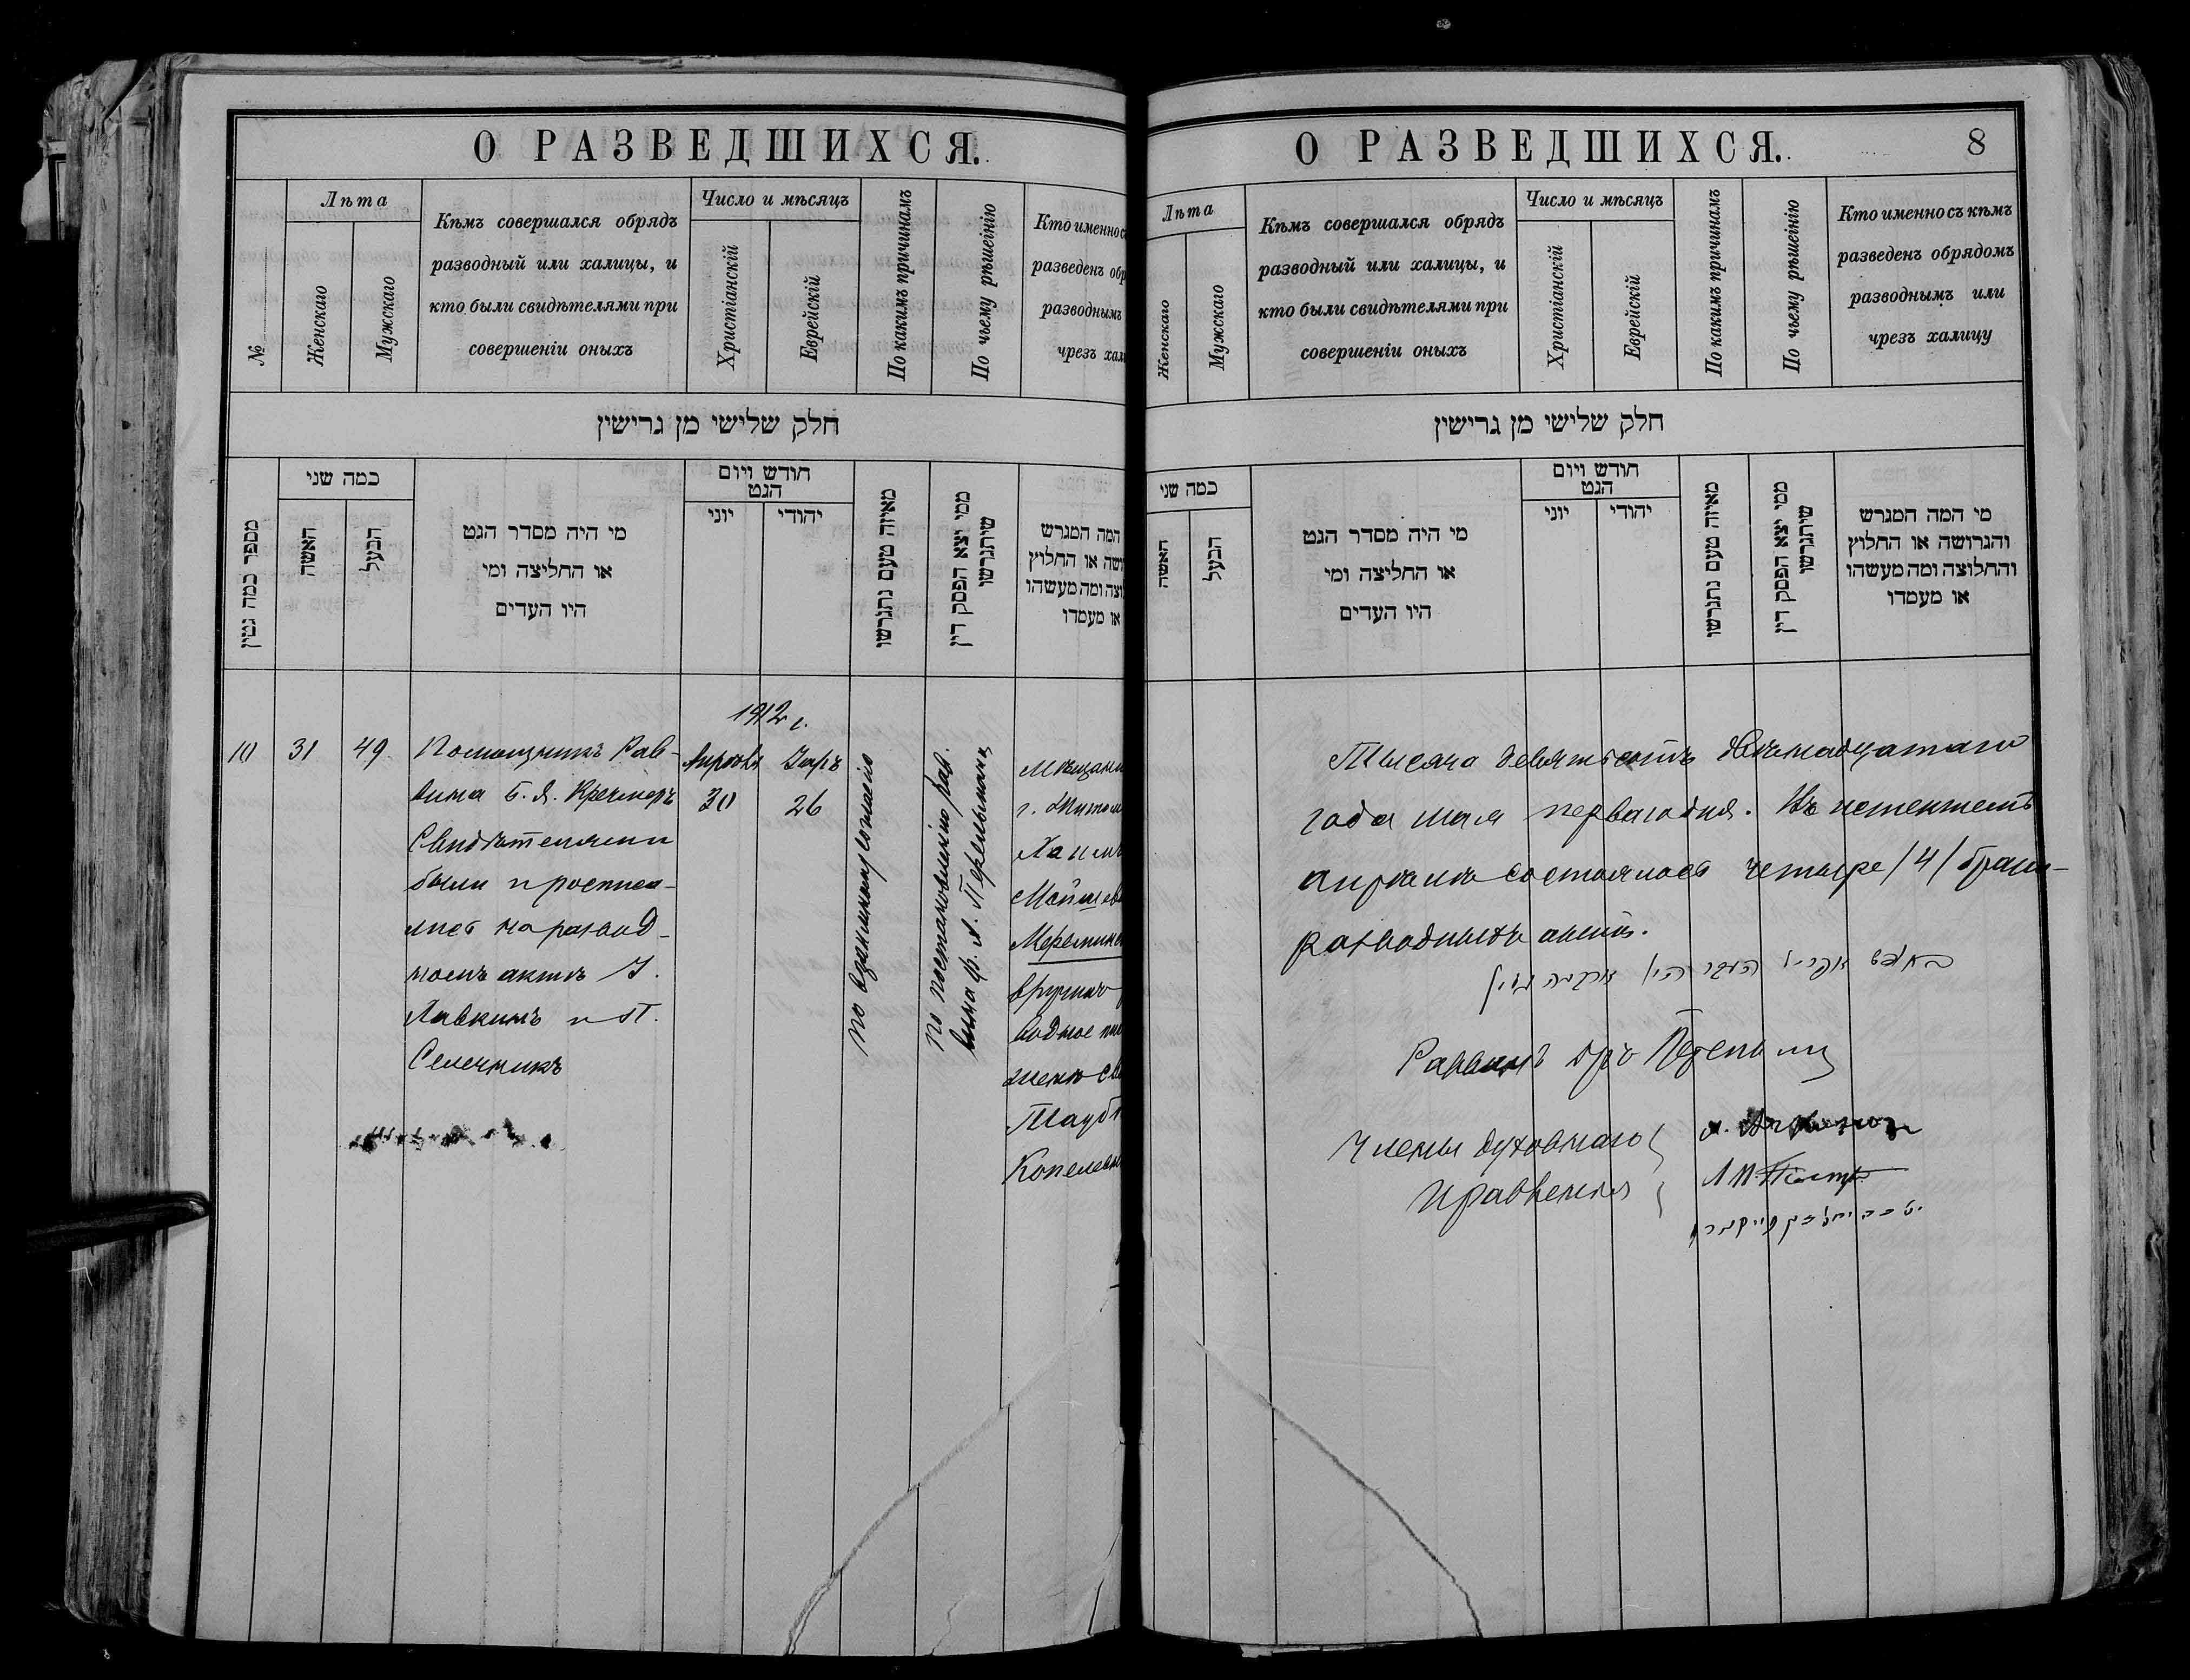 О РАЗВЕДШИХСЯ.
№
Лѣта
Женскаго
Мужскаго
Кѣмъ совершался обрядъ
разводный или халицы, и
кто были свидѣтелями при
совершеніи оныхъ
Число и мѣсяцъ
Христіанскій
Еврейскій
По какимъ причинамъ
По чьему рѣшеінію
Кто именно съ
разведенъ обр
разводнымъ
чрезъ хал
חלק שלישי מן גרישין
מספר כמה גטין
כמה שני
האשה
הבעל
מי היה מסדר הגט
או החליצה ומי
היו העדים
חודש ויום
הגט
יוני
יהודי
מאיזה טעם נתגרשו
ממי יצא הפסק דין
שיתגרשו
המה המגרש
ושה או החלוץ
וצה ומה מעשהו
או מעמדו
1912 г.
10
31
49
Помощникъ Рав-
вина Б. Я. Кречмеръ
Свидѣтелями
были и росписа-
лись на развод-
номъ актѣ І.
Лавкинъ и П.
Селечникъ
Апрѣля
30
Іаръ
26
По взаимному согласію
По постановленію рав.
вина Ф. А. Перельманъ
Мѣщани
г. Житом
Хаимъ
Мойшев
Мермин
вручилъ
водное пи
женѣ св
Таубѣ
Копелев
О РАЗВЕДШИХСЯ.
8
Лѣта
Женскаго
Мужскаго
Кѣмъ совершался обрядъ
разводный или халицы, и
кто были свидѣтелями при
совершеніи оныхъ
Число и мѣсяцъ
Христіанскій
Еврейскій
По какимъ причинамъ
По чьему рѣшеінію
Кто именно съ кѣмъ
разведенъ обрядомъ
разводнымъ или
чрезъ халицу
חלק שלישי מן גרישין
כמה שני
האשה
הבעל
מי היה מסדר הגט
או החליצה ומי
היו העדים
חודש ויום
הגט
יוני
יהודי
מאיזה טעם נתגרשו
ממי יצא הפסק דין
שיתגרשו
מי המה המגרש
והגרושה או החלוץ
והחלוצה ומה מעשהו
או מעמדו
Тысяча девятьсотъ двѣнадцатаго
года мая перваго дня. Въ истекшемъ
апрѣлѣ состоялось четыре /4/ брако-
разводныхъ актовъ.
Раввинъ
Члены духовнаго
правленія